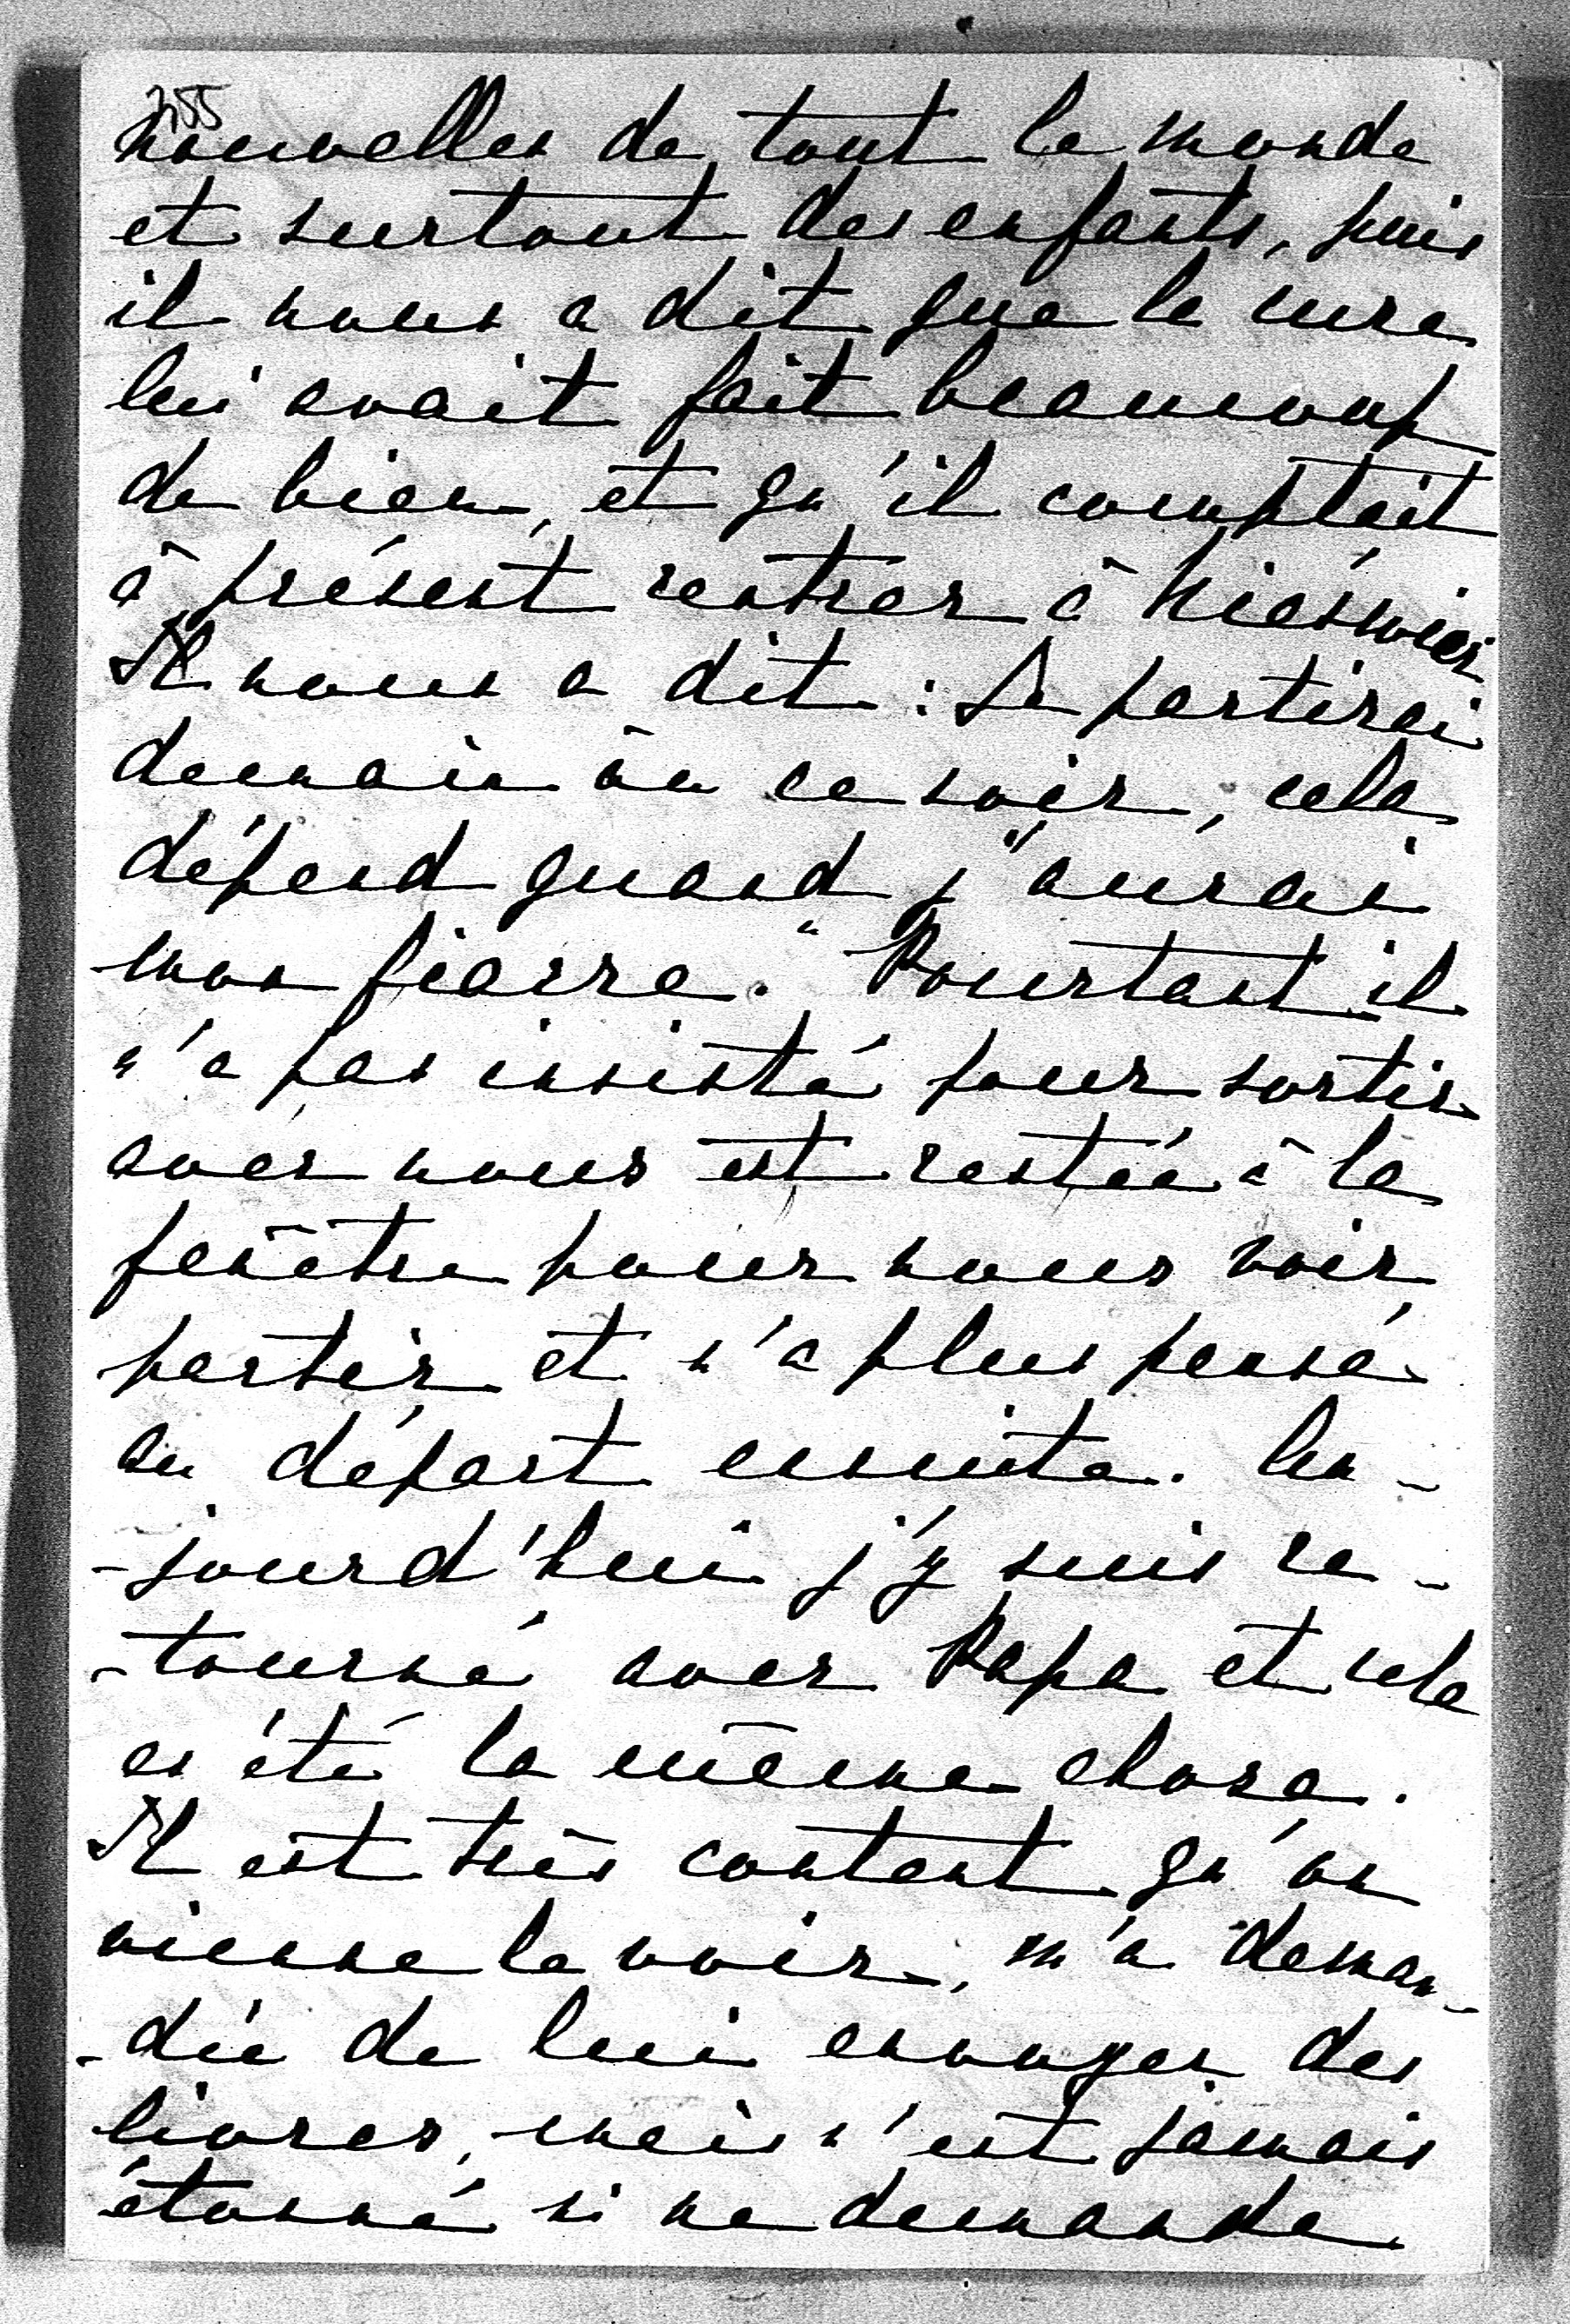 355
nouvelles de tout le monde
et surtout des enfants, puis
il nous a dit que la cure
lui avait fait beaucoup
de bien, et qu'il comptait
à présent rentrer à Niéswiez
Il nous a dit : Je partirai
demain ou ce soir, cela
dépend quand j'aurai
mon fiacre." Pourtant il
n'a pas insisté pour sortir
avec nous est restée à la
fenêtre pour nous voir
partir et n'a plus pensé
au départ ensuite. Au-
-jourd'hui j'y suis re-
-tourné avec Papa et cela
a été la même chose.
Il est très content qu'on
vienne le voir, m'a deman-
-dée de lui envoyer des
livres, mais n'est jamais
étonné ni ne demande